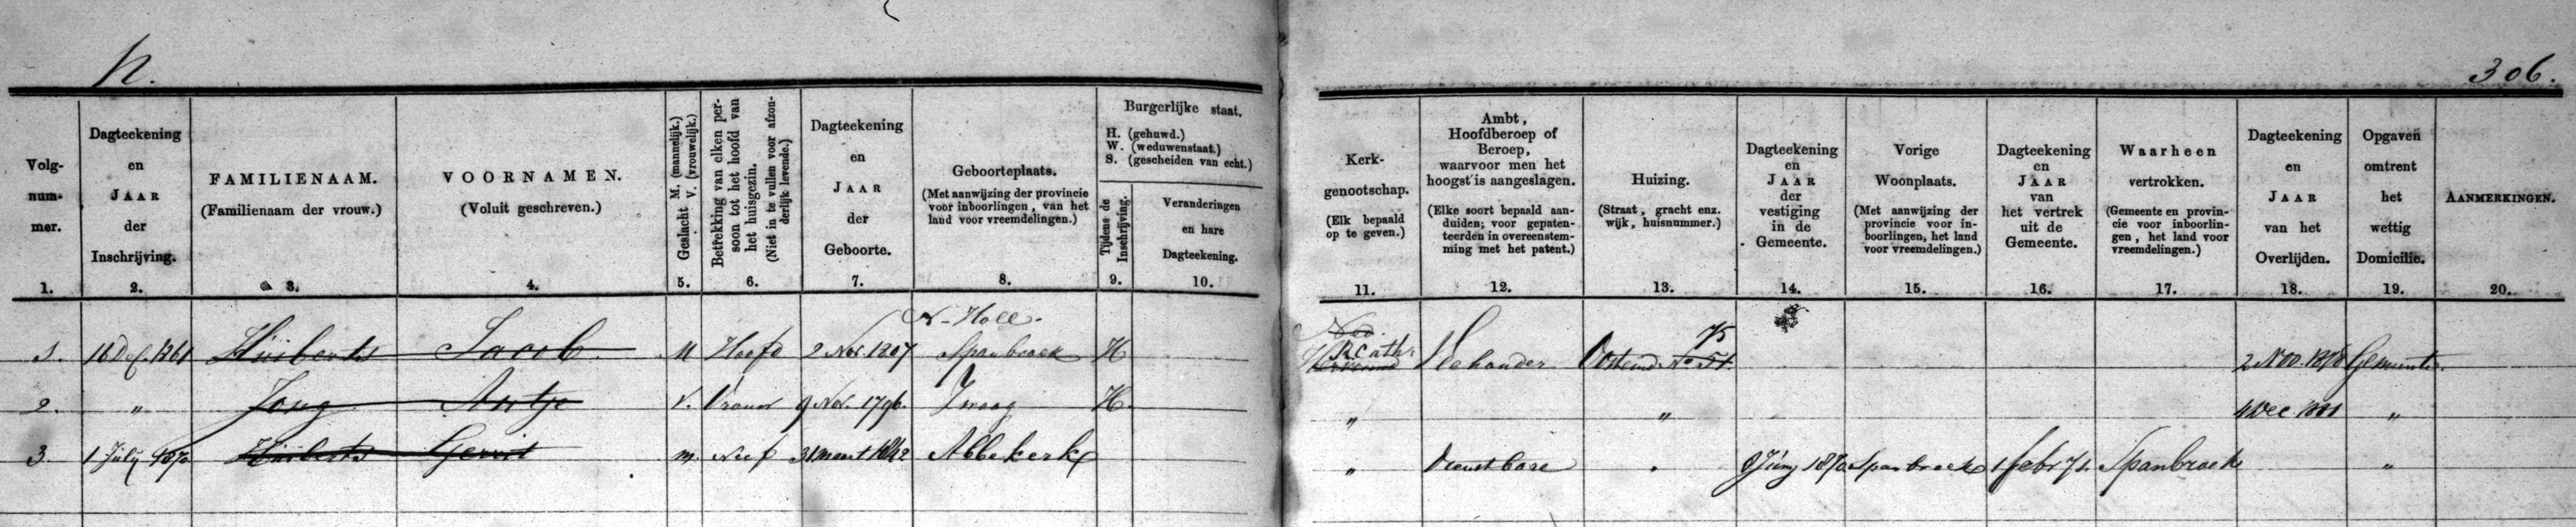 h. 306.
Volg-
num-
mer.
1.
Dagteekening
en
JAAR
der
Inschrijving.
2.
FAMILIENAAM.
(Familienaam der vrouw.)
3.
VOORNAMEN.
(Voluit geschreven.)
4.
Geslacht M. (mannelijk.)
V. (vrouwelijk.)
5.
Betrekking van elken per-
soon tot het hoofd van
het huisgezin.
(Niet in te vullen voor afzon-
derlijk levende.)
6.
Dagteekening
en
JAAR
der
Geboorte.
7.
Geboorteplaats.
(Met aanwijzing der provincie
voor inboorlingen, van het
land voor vreemdelingen.)
8.
Burgerlijke staat.
H. (gehuwd.)
W. (weduwenstaat.)
S. (gescheiden van echt.)
Tijdens de
Inschrijving.
9.
Veranderingen
en hare
Dagteekening.
10.
Kerk-
genootschap.
(Elk bepaald
op te geven.)
11.
Ambt,
Hoofdberoep of
Beroep,
waarvoor men het
hoogst is aangeslagen.
(Elke soort bepaald aan-
duiden; voor gepaten-
teerden in overeenstem-
ming met het patent.)
12.
Huizing.
(Straat, gracht enz.
wijk, huisnummer.)
13.
Dagteekening
en
JAAR
der
vestiging
in de
Gemeente.
14.
Vorige
Woonplaats.
(Met aanwijzing der
provincie voor in-
boorlingen, het land
voor vreemdelingen.)
15.
Dagteekening
en
JAAR
van
het vertrek
uit de
Gemeente.
16.
Waarheen
vertrokken.
(Gemeente en provin-
cie voor inboorlin-
gen, het land voor
vreemdelingen.)
17.
Dagteekening
en
JAAR
van het
Overlijden.
18.
Opgaven
omtrent
het
wettig
Domicilie.
19.
AANMERKINGEN.
20.
N-Holl. Ned. 75
1. 16 Dec. 1861 Huiberts Jacob M Hoofd 2 Nov. 1807 Spanbroek H R Cath. Oosteind No 51. 2 Nov. 1878 Gemeente.
2. " Jong Antje V. Vrouw 9 Nov. 1796. Zwaag H. " " 4 Dec 1881 "
3. 1 July 1870 Huiberts Gerrit m. Neef 31 maart 1842 Abbekerk " Dienstbare " Juny 1870 Spanbroek 1 febr 71. Spanbroek "